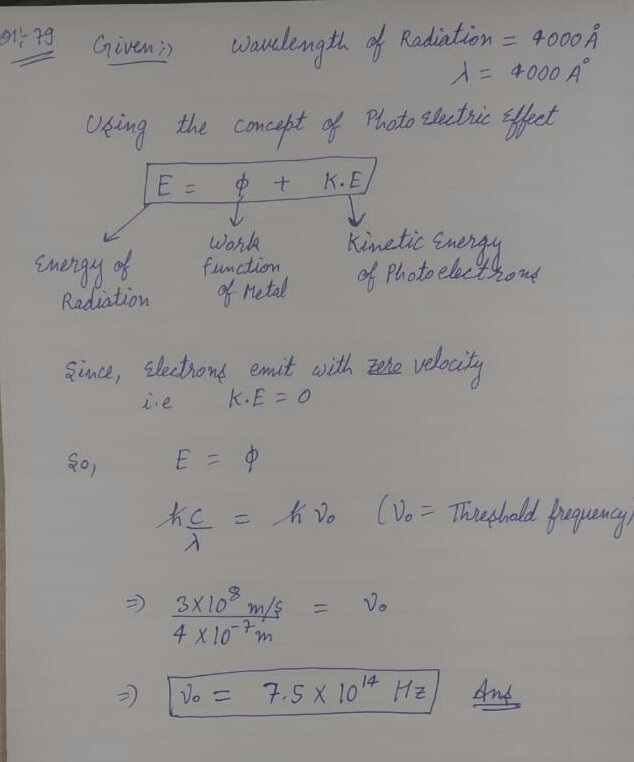 Q1:- 79 Given:) Wavelength of Radiation = 4000 Å
λ = 4000 Å
Using the concept of Photo Electric Effect
E = ϕ + K.E
Energy of Radiation
Work Function of Metal
Kinetic Energy of Photoelectrons
Since, Electrons emit with zero velocity
i.e K.E = 0
So, E = ϕ
hc/λ = hν₀ (ν₀ = Threshold frequency)
⇒ 3×10⁸ m/s / 4×10⁻⁷ m = ν₀
⇒ ν₀ = 7.5 × 10¹⁴ Hz Ans